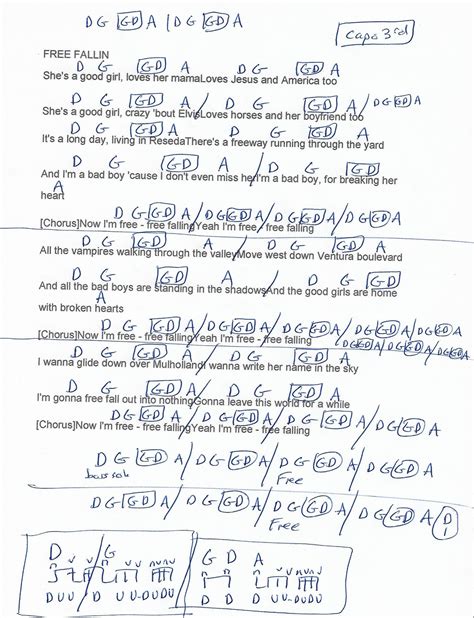 D G [GD] A / D G [GD] A
Capo 3rd
FREE FALLIN
D G [GD] A D G [GD] A
She's a good girl, loves her mamaLoves Jesus and America too
D G [GD] A / D G [GD] A / D G [GD] A
She's a good girl, crazy 'bout ElvisLoves horses and her boyfriend too
D G [GD] A D G [GD] A
It's a long day, living in ResedaThere's a freeway running through the yard
D G [GD] A / D G [GD]
And I'm a bad boy 'cause I don't even miss herI'm a bad boy, for breaking her
A
heart
D G [GD] A / D G [GD] A / D G [GD] A / D G (GD) A
[Chorus]Now I'm free - free fallingYeah I'm free - free falling
D G [GD] A D G [GD] A
All the vampires walking through the valleyMove west down Ventura boulevard
D G [GD] A D G [GD]
And all the bad boys are standing in the shadowsAnd the good girls are home
A
with broken hearts
D G [GD] A / D G [GD] A / D G [GD] A / D G (GD) A / D G (GD) A
[Chorus]Now I'm free - free fallingYeah I'm free - free falling
D G (GD) A / D G (GD) A / D G (GD) A
D G [GD] A / D G [GD] A
I wanna glide down over MulhollandI wanna write her name in the sky
D G [GD] A D G [GD] A
I'm gonna free fall out into nothingGonna leave this world for a while
D G [GD] A / D G (GD) A / D G (GD) A / D G (GD) A
[Chorus]Now I'm free - free fallingYeah I'm free - free falling
D G (GD) A / D G (GD) A / D G (GD) A / D G (GD) A
Free
D G [GD] A / D G [GD] A / D G (GD) A / D G (GD) A / D
Free
D / G G D A
D U U / D UU-DUDU D D D UU-DUDU